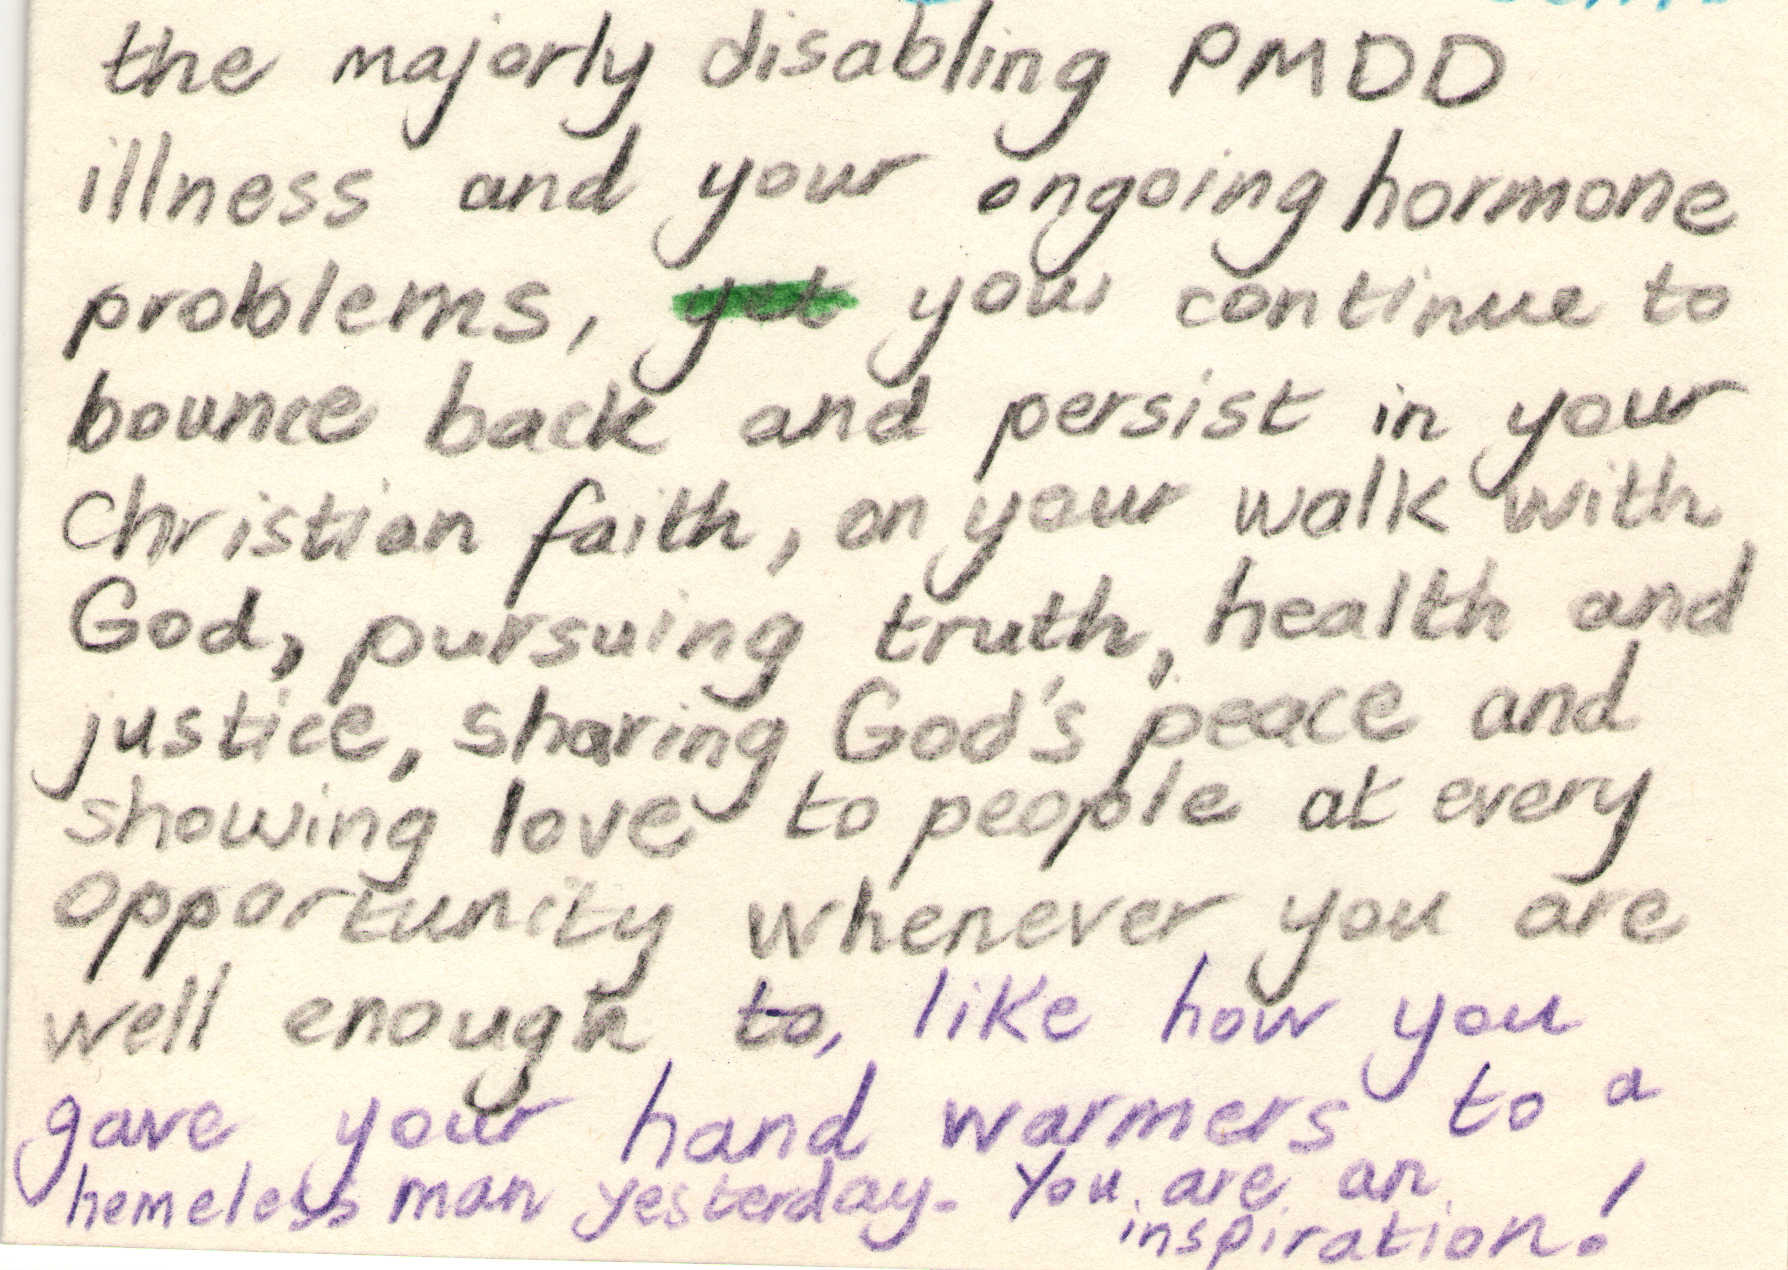 the majorly disabling PMDD
illness and your ongoing hormone
problems, yet you continue to
bounce back and persist in your
Christian faith, on your walk with
God, pursuing truth, health and
justice, sharing God's peace and
showing love to people at every
opportunity whenever you are
well enough to, like how you
gave your hand warmers to a
homeless man yesterday. You are an
inspiration!